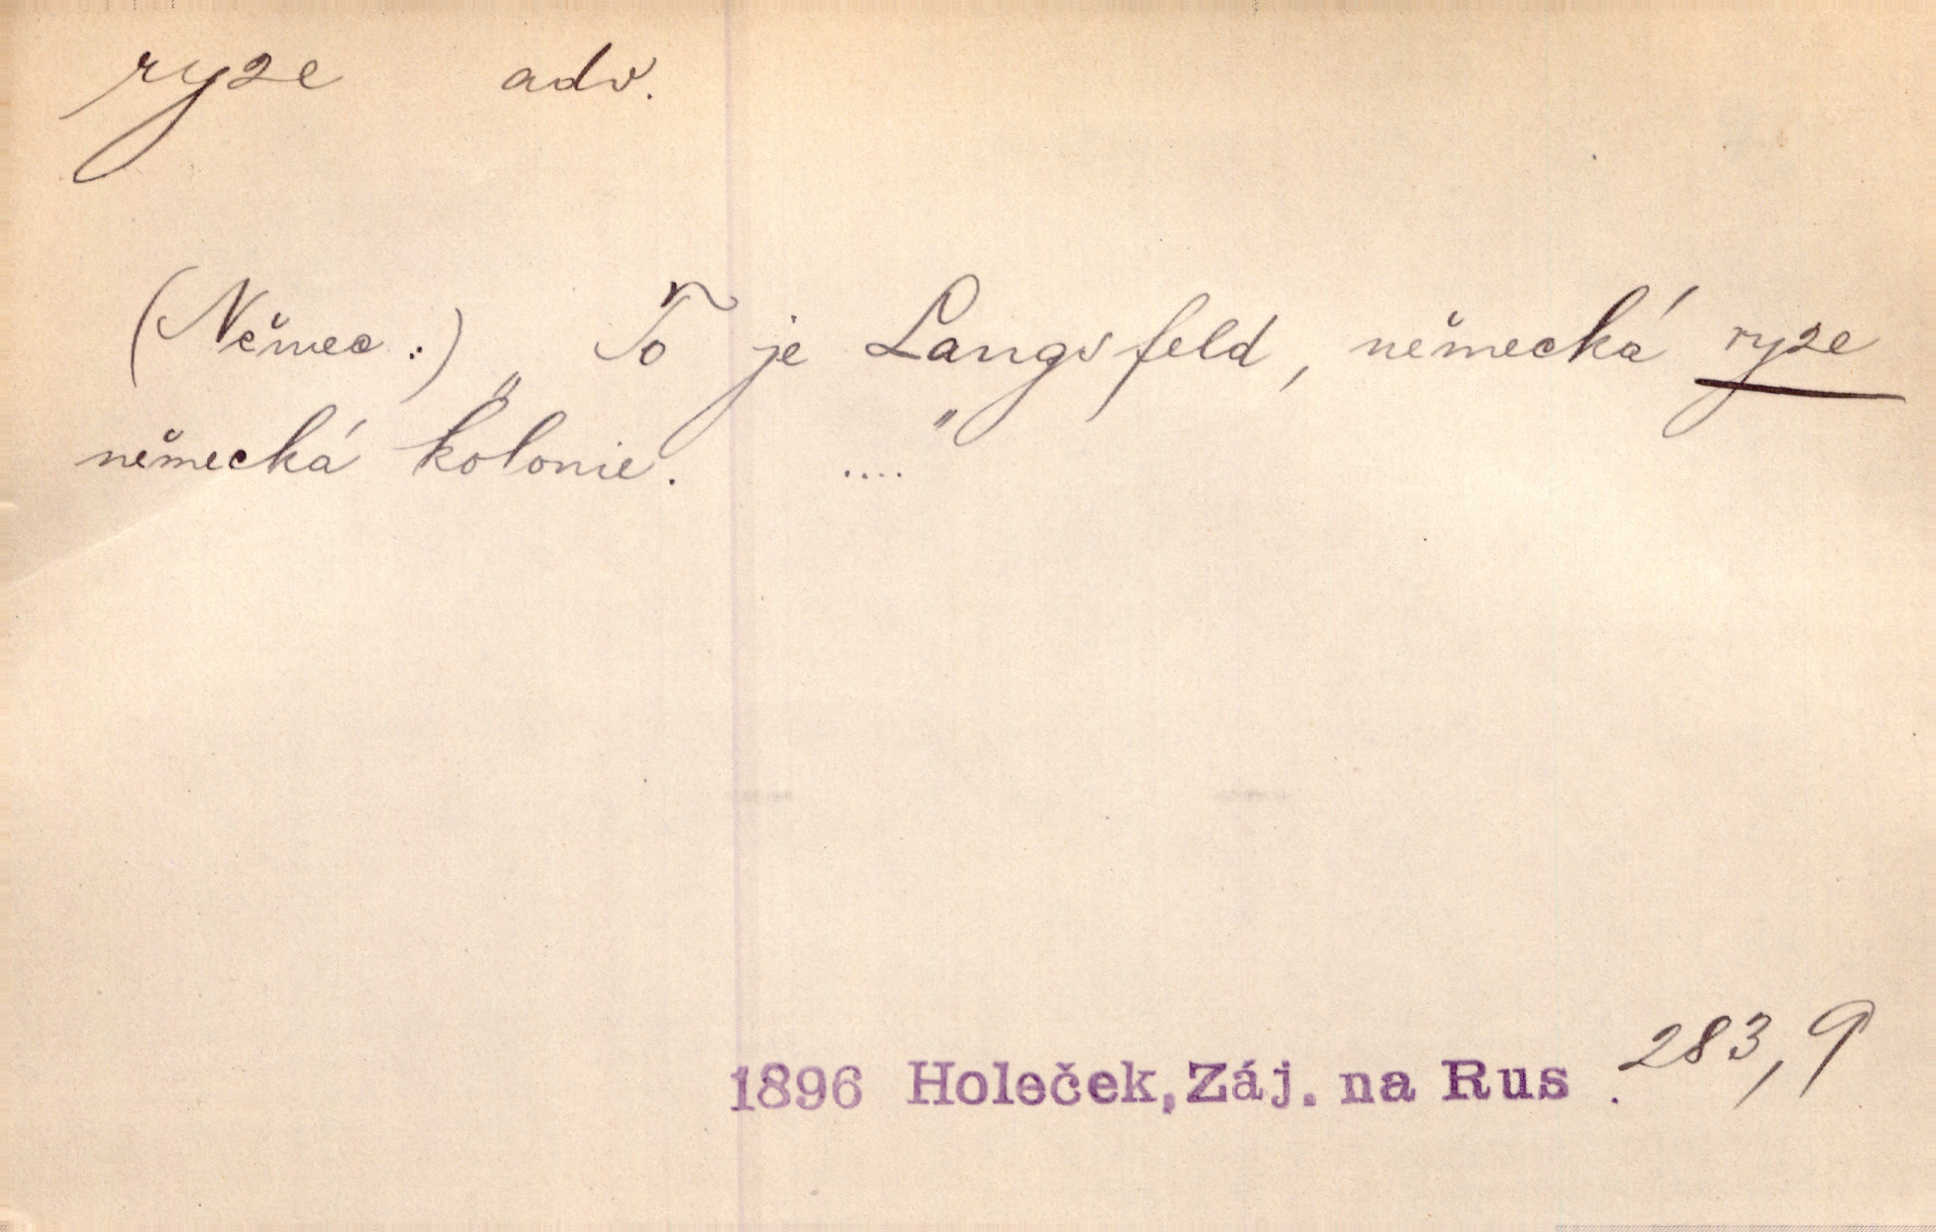 ryze adv.
(Němec:) „To je Langsfeld, německá ryze
německá kolonie. ...."
1896 Holeček, Záj. na Rus. 283, 9